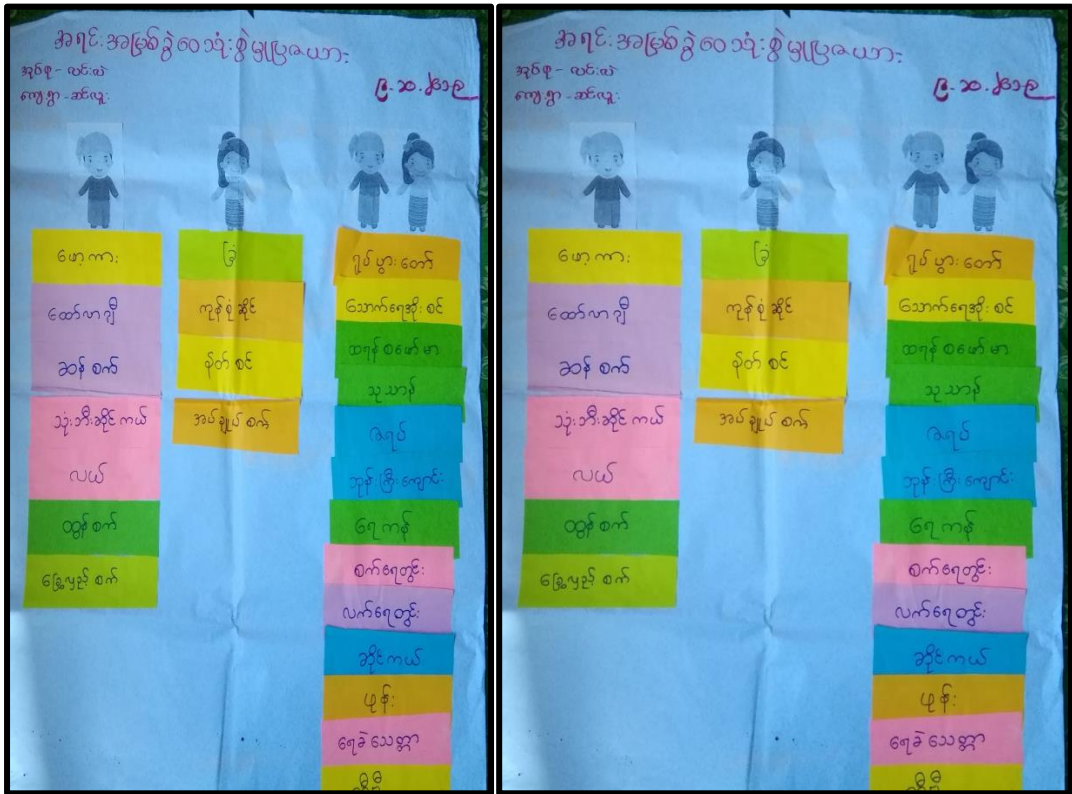 အရင်းအမြစ်ခွဲဝေသုံးစွဲမှုပြဇယား
အုပ်စု - လင်းလဲ
ကျေးရွာ - ဆင်လူး
၉.၁၀.၂၀၁၉
ဖော့ကား
ထော်လာဂျီ
ဆန်စက်
သုံးဘီးဆိုင်ကယ်
လယ်
ထွန်စက်
ခြွေလှေ့စက်
ခြံ
ကုန်စုံဆိုင်
နိတ်စင်
အပ်ချုပ်စက်
ရုပ်ပွားတော်
သောက်ရေအိုးစင်
ထရန်စဖော်မာ
သုသာန်
ဇရပ်
ဘုန်းကြီးကျောင်း
ရေကန်
စက်ရေတွင်း
လက်ရေတွင်း
ဆိုင်ကယ်
ဖုန်း
ရေခဲသေတ္တာ
အရင်းအမြစ်ခွဲဝေသုံးစွဲမှုပြဇယား
အုပ်စု - လင်းလဲ
ကျေးရွာ - ဆင်လူး
၉.၁၀.၂၀၁၉
ဖော့ကား
ထော်လာဂျီ
ဆန်စက်
သုံးဘီးဆိုင်ကယ်
လယ်
ထွန်စက်
ခြွေလှေ့စက်
ခြံ
ကုန်စုံဆိုင်
နိတ်စင်
အပ်ချုပ်စက်
ရုပ်ပွားတော်
သောက်ရေအိုးစင်
ထရန်စဖော်မာ
သုသာန်
ဇရပ်
ဘုန်းကြီးကျောင်း
ရေကန်
စက်ရေတွင်း
လက်ရေတွင်း
ဆိုင်ကယ်
ဖုန်း
ရေခဲသေတ္တာ